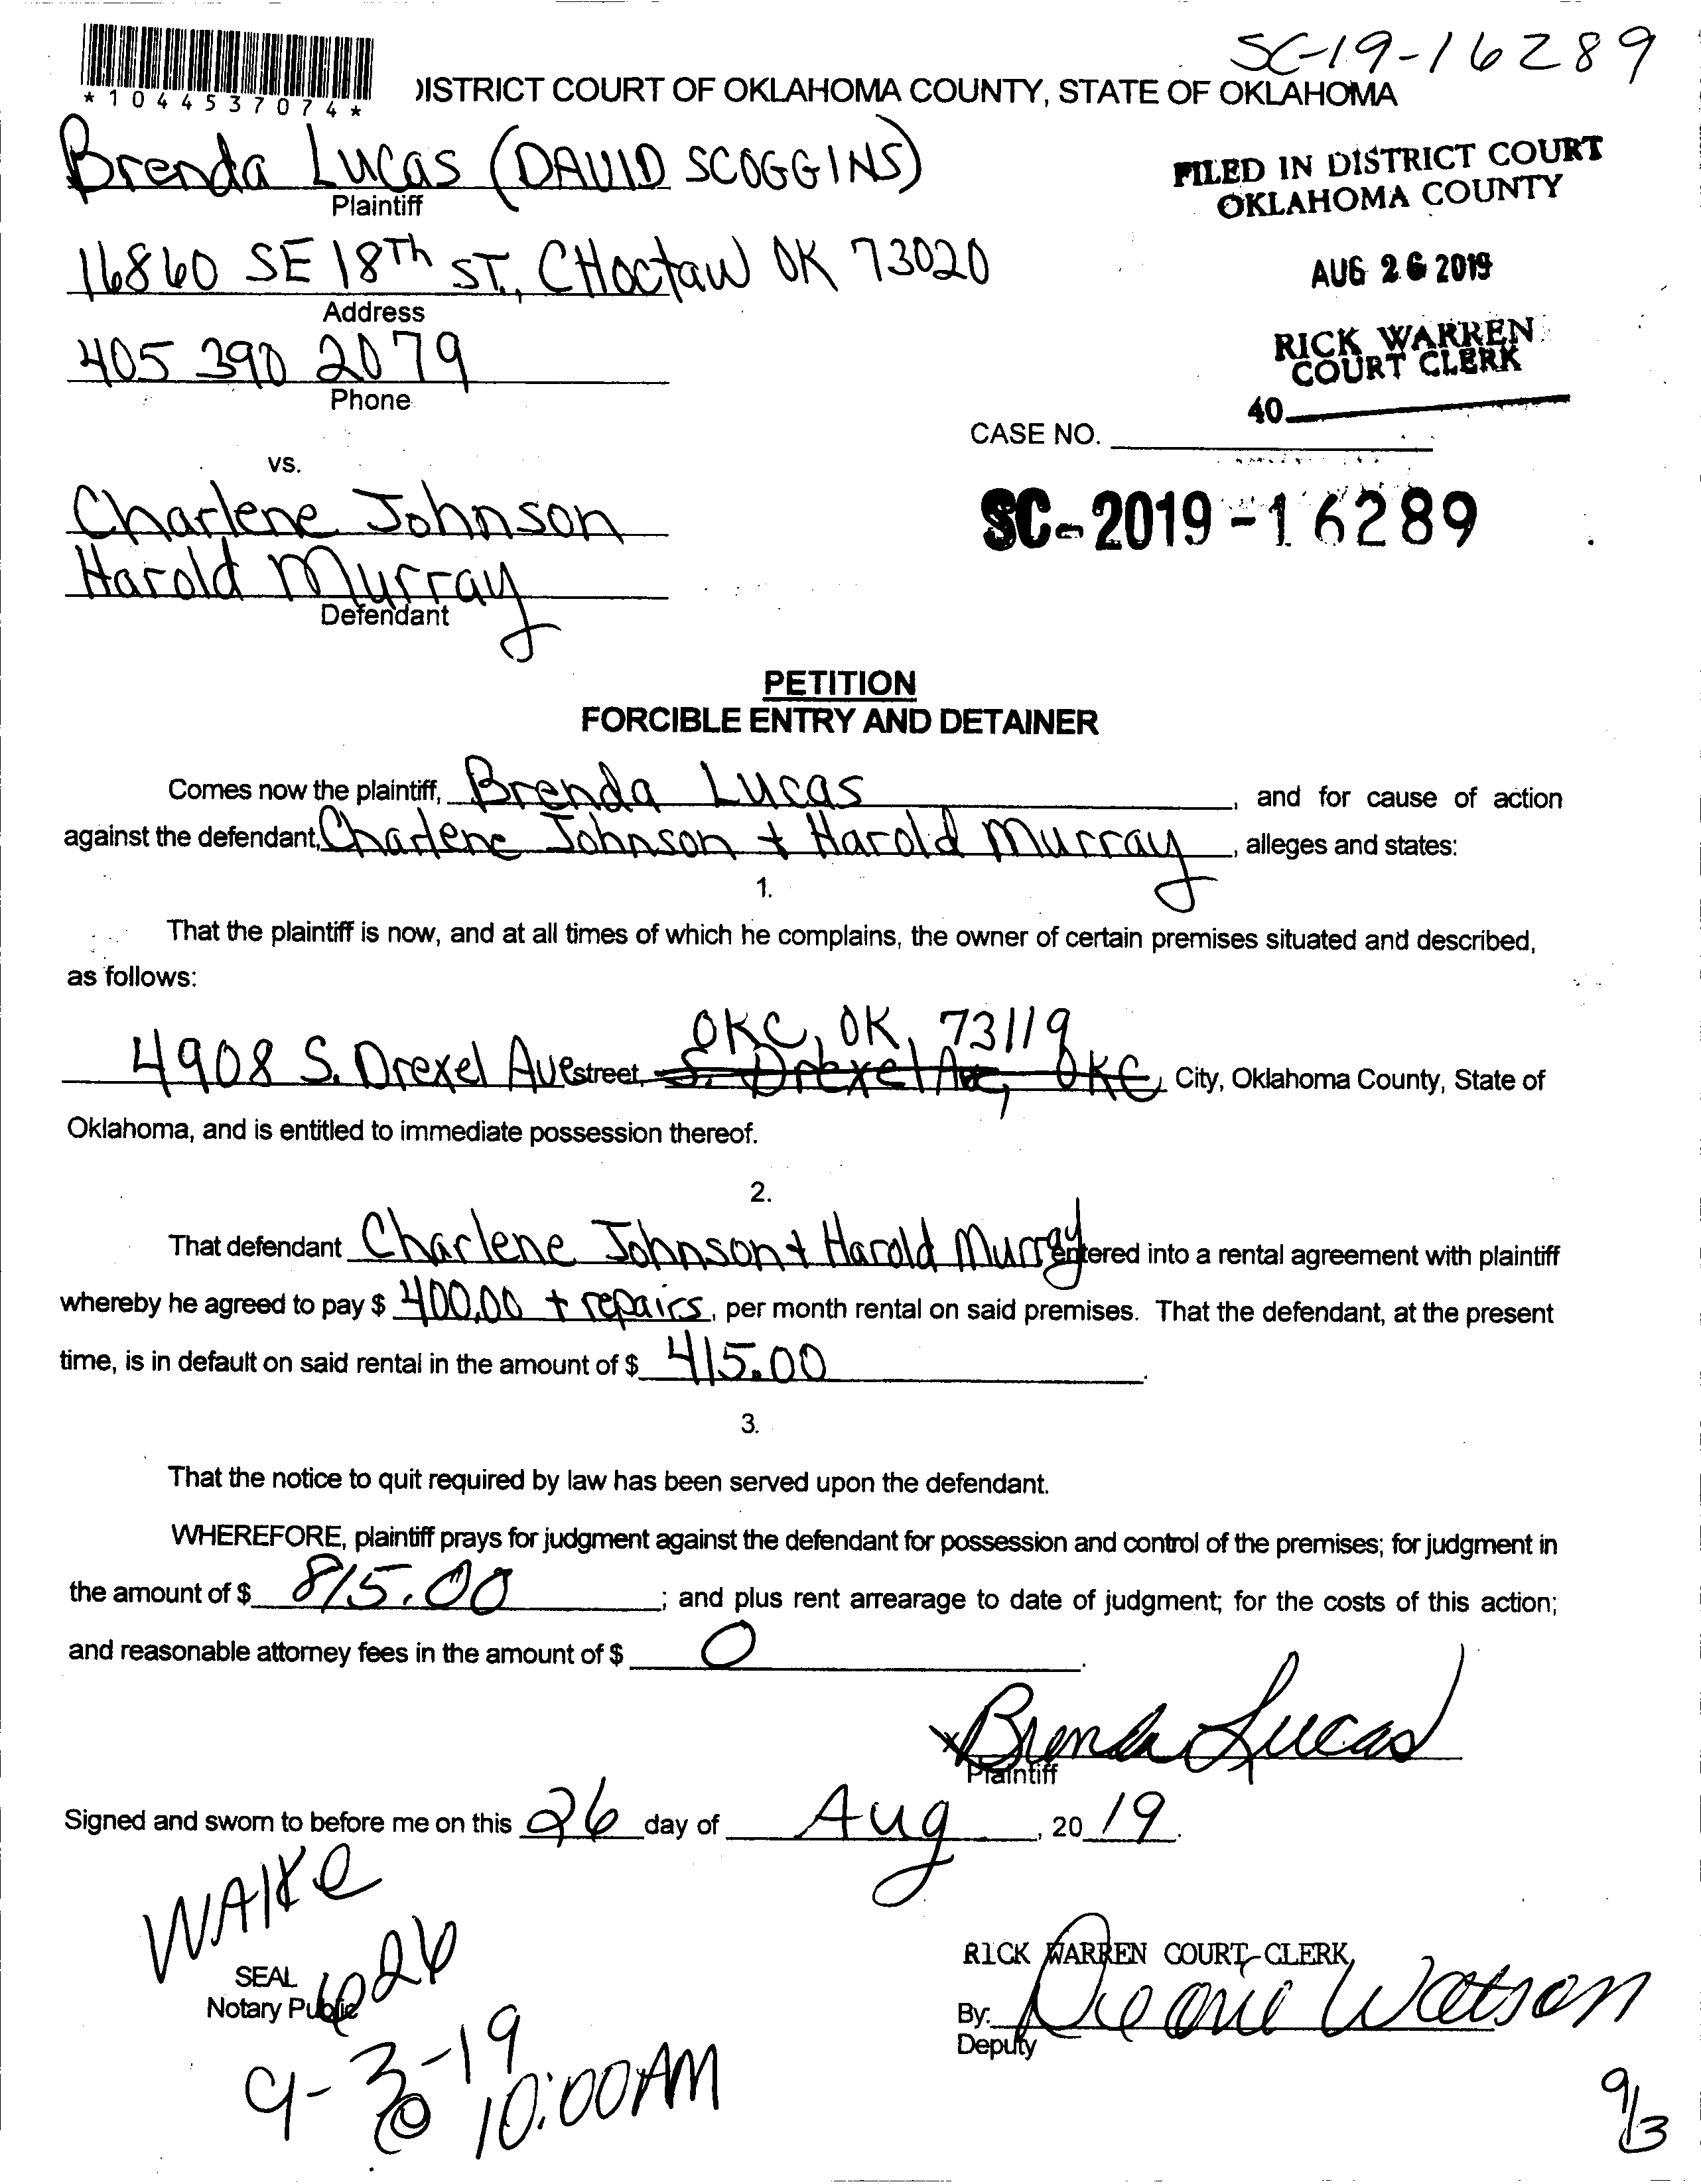 SC-19-16289
*1044537074*
DISTRICT COURT OF OKLAHOMA COUNTY, STATE OF OKLAHOMA
Brenda Lucas (DAVID SCOGGINS)
Plaintiff
FILED IN DISTRICT COURT
OKLAHOMA COUNTY
16860 SE 18Th ST., CHoctaw OK 73020
Address
AUG 26 2019
405 390 2079
Phone
RICK WARREN
COURT CLERK
40
CASE NO.
vs.
Charlene Johnson
Harold Murray
Defendant
SC-2019-16289
PETITION
FORCIBLE ENTRY AND DETAINER
Comes now the plaintiff, Brenda Lucas, and for cause of action
against the defendant, Charlene Johnson + Harold Murray, alleges and states:
1.
That the plaintiff is now, and at all times of which he complains, the owner of certain premises situated and described,
as follows:
OKC, OK, 73119
4908 S. Drexel Ave street, S. Drexel Ave, OKC, City, Oklahoma County, State of
Oklahoma, and is entitled to immediate possession thereof.
2.
That defendant Charlene Johnson + Harold Murray entered into a rental agreement with plaintiff
whereby he agreed to pay $ 400.00 + repairs, per month rental on said premises. That the defendant, at the present
time, is in default on said rental in the amount of $ 415.00.
3.
That the notice to quit required by law has been served upon the defendant.
WHEREFORE, plaintiff prays for judgment against the defendant for possession and control of the premises; for judgment in
the amount of $ 815.00; and plus rent arrearage to date of judgment; for the costs of this action;
and reasonable attorney fees in the amount of $ 0.
x Brenda Lucas
Plaintiff
Signed and sworn to before me on this 26 day of Aug, 2019.
SEAL
Notary Public
RICK WARREN COURT CLERK
By: Watson
Deputy
9-3-19
@ 10:00AM
9/3